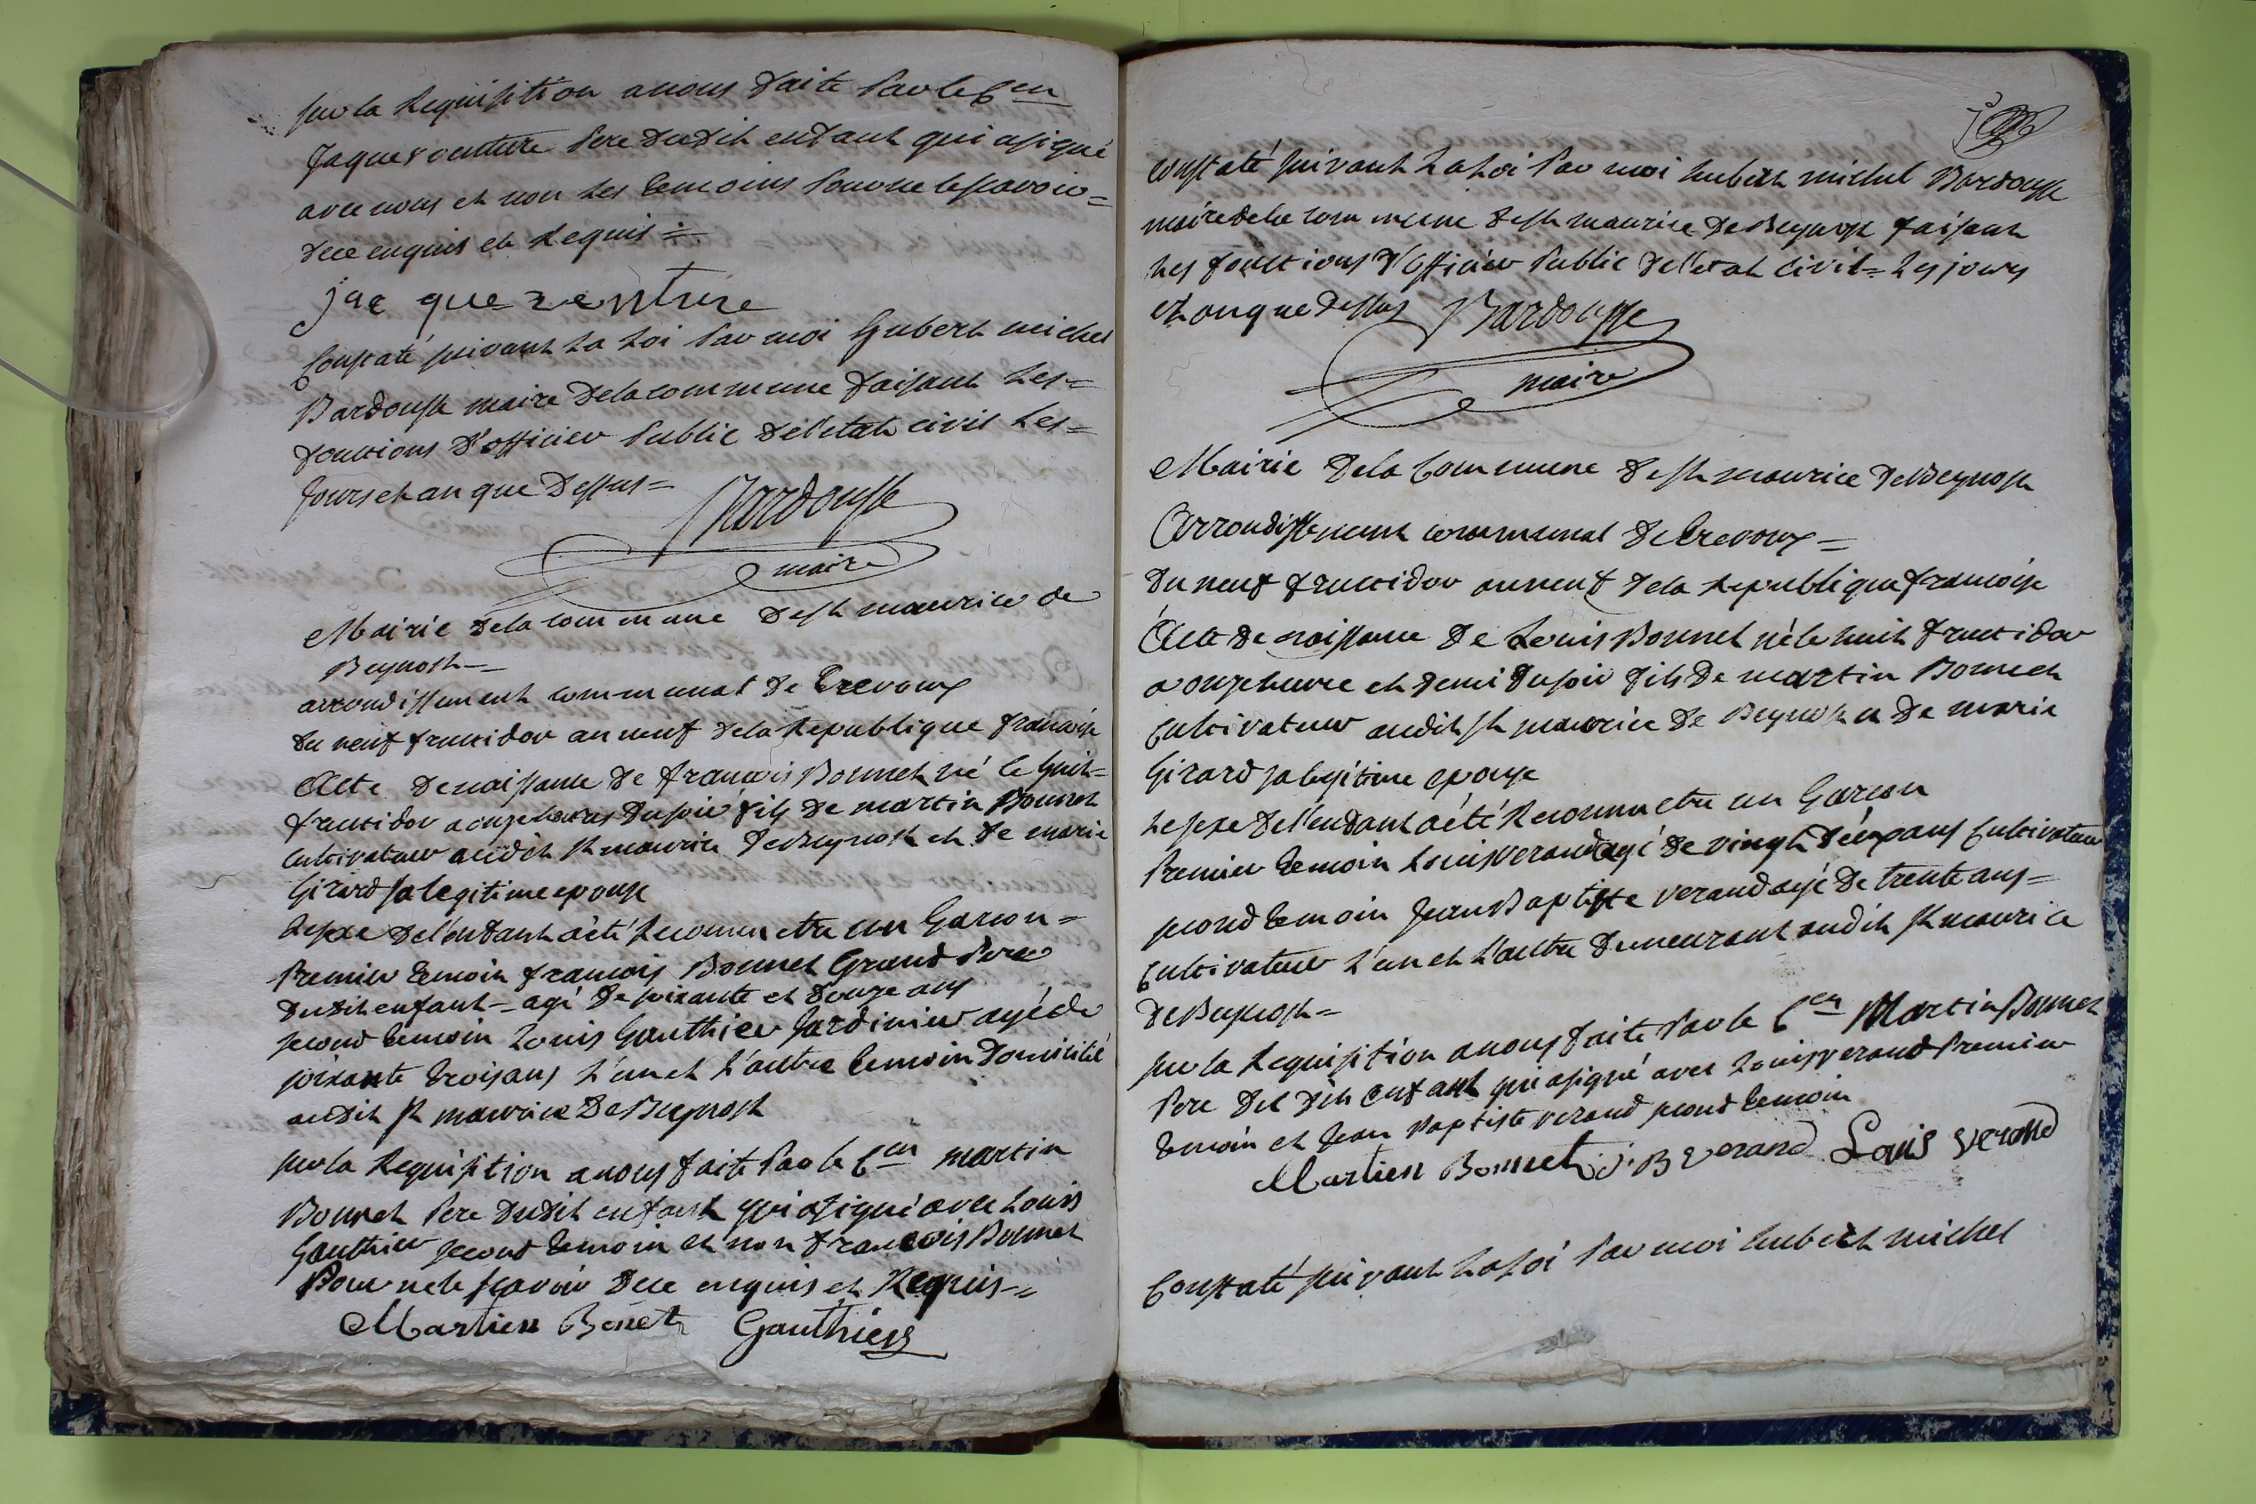 sur la Requisition a nous faite Par le Cen
Jaque venture Pere dudit enfant qui a signé
avec nous et non les temoins Pour ne le scavoir =
de ce enquis et Requis =
jaque venture
Constaté suivant La Loi Par moi hubert michel
Bardousse maire de la commune faisant Les =
fonctions d'officier Public de l'etat civil Les =
Jours et an que Dessus =
Bardousse
maire
Mairie de la commune de st maurice de
Beynost
arrondissement communal de Trevoux
du neuf fructidor an neuf de la Republique francoise
Acte de naissance de francois Bonnet né le huit =
fructidor a onze heures du soir fils de martin Bonnet
Cultivateur audit st maurice de Beynost et de marie
Girard sa legitime epouse
Le sexe de l'enfant a été Reconnu etre un Garcon =
Premier temoin francois Bonnet Grand Pere
dudit enfant - agé de soixante et douze ans
second temoin Louis Gauthier Jardinier agé de
soixante trois ans L'un et L'autre temoin domicilié
audit st maurice de Beynost
sur la Requisition a nous faite Par le Cen martin
Bonnet Pere dudit enfant qui a signé avec Louis
Gauthier second temoin et non francois Bonnet
Pour ne le scavoir de ce enquis et Requis =
Martien Bonet Gauthier
Constaté suivant La Loi Par moi hubert michel Bardousse
maire de la commune de st maurice de Beynost faisant
Les fonctions d'officier Public de l'etat civil = Les jours
et an que dessus Bardousse
maire
Mairie de la Commune de st maurice de Beynost
Arrondissement communal de Trevoux =
du neuf fructidor an neuf de la Republique francoise
Acte de naissance de Louis Bonnet né le huit fructidor
a onze heure et demi du soir fils de martin Bonnet
Cultivateur audit st maurice de Beynost et de marie
Girard sa legitime epouse
Le sexe de l'enfant a été Reconnu etre un Garcon
Premier temoin Louis verand agé de vingt deux ans Cultivateur
second temoin Jean Baptiste verand agé de trente ans =
Cultivateur L'un et L'autre demeurant audit st maurice
de Beynost =
sur la Requisition a nous faite Par le Cen Martin Bonnet
Pere du dit enfant qui a signé avec Louis verand Premier
temoin et Jean Baptiste verand second temoin
Martien Bonnet j. B verand Louis verand
Constaté suivant La Loi Par moi hubert michel